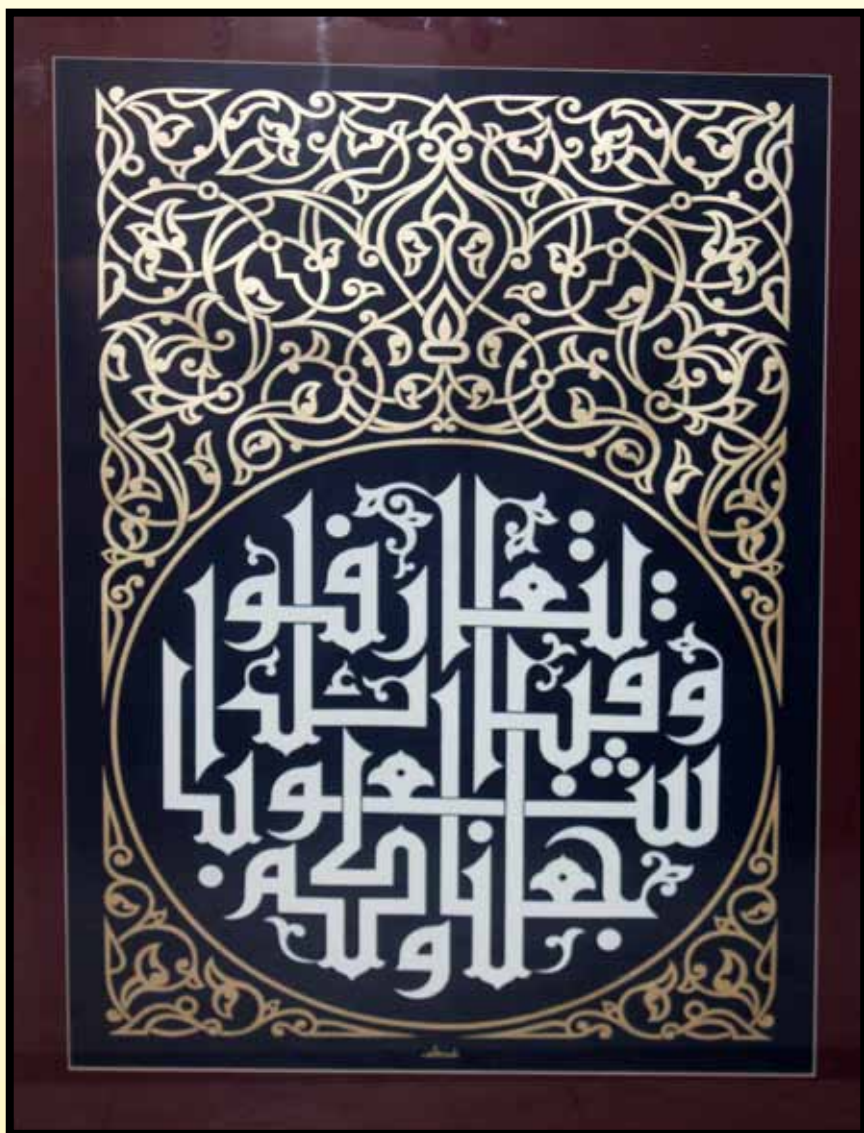 وجعلناكم
شعوبا
وقبائل
لتعارفوا